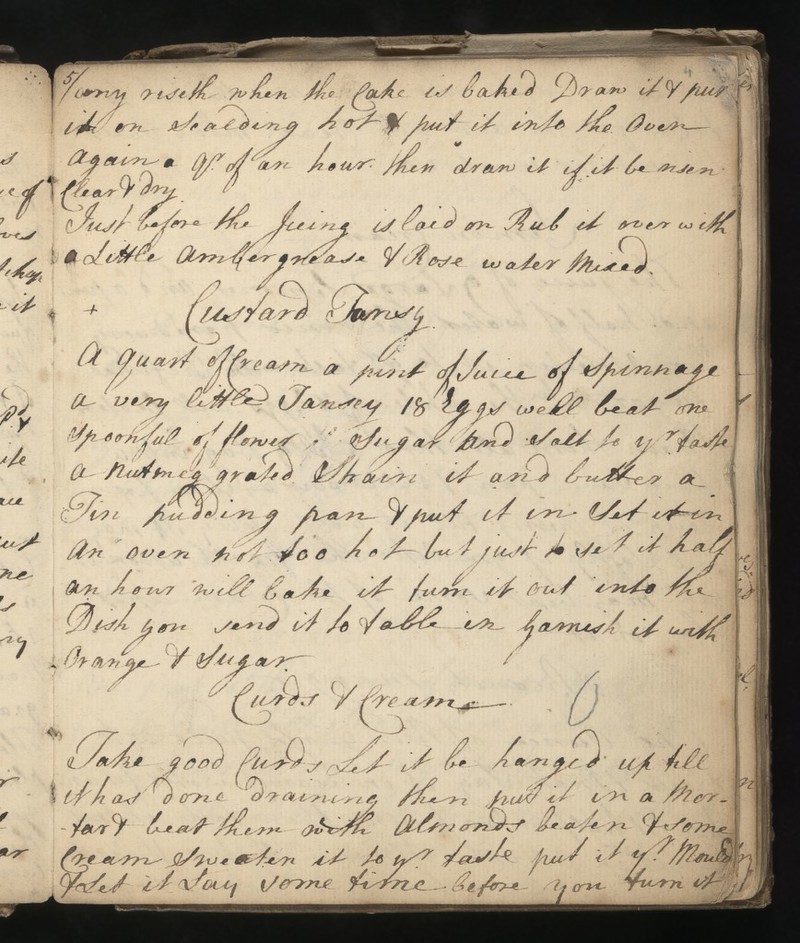 5/
any riseth when the Cake is baked Draw it & put
it on Scalding hot & put it into the Oven
again a qr. of an hour. then draw it if it be risen
Clear & dry
Just before the Jceing is laid on Rub it over with
a Little Ambergrease & Rose water Mixed.
+ Custard Tansy
A quart of Cream a pint of Juice of Spinnage
a very little Tansey 18 Eggs well beat one
spoonful of flower Sugar And Salt to yr taste
a Nutmeg grated Strain it and butter a
Tin pudding pan & put it in Set it in
An oven not too hot but just to set it half
an hour will bake it turn it out into the
Dish you send it to table in Garnish it with
Orange & Sugar.
Curds & Cream
Take good Curds Let it be hanged up till
it has done draining then put it in a Mor-
-tar & beat them with Almonds beaten & some
Cream Sweeten it to yr taste put it yr Mould
& Let it Lay some time before you turn it